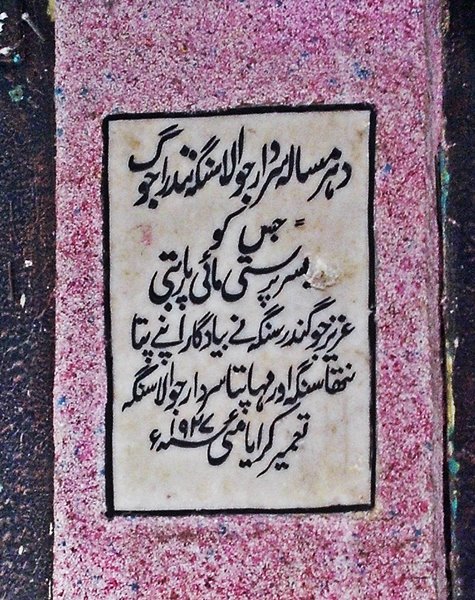 دہرمسالہ سردار جوالاسنگہ نندراجوگ
جس کو
بسرپرستی مائی پاربتی
عزیز جوگندرسنگہ نے بیادگار اپنے پتا
نتھاسنگہ اور مہاپتا سردار جوالاسنگہ
تعمیر کرایا مئی سنہ ۱۹۲۷ء